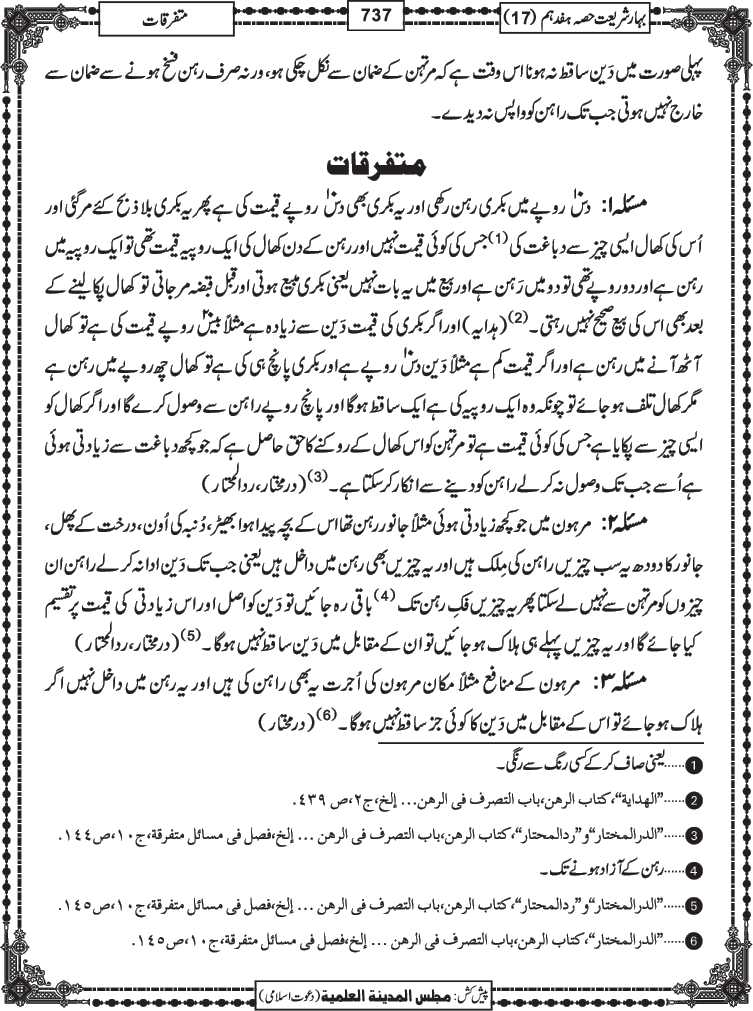 بہارشریعت حصہ ہفدہم (17)
737
متفرقات
پہلی صورت میں دَین ساقط نہ ہونا اس وقت ہے کہ مرتہن کے ضمان سے نکل چکی ہو، ورنہ صرف رہن فسخ ہونے سے ضمان سے
خارج نہیں ہوتی جب تک راہن کو واپس نہ دیدے۔
متفرقات
مسئلہ۱: دس۱۰ روپے میں بکری رہن رکھی اور یہ بکری بھی دس۱۰ روپے قیمت کی ہے پھر یہ بکری بلا ذبح کئے مرگئی اور
اُس کی کھال ایسی چیز سے دباغت کی (1) جس کی کوئی قیمت نہیں اور رہن کے دن کھال کی ایک روپیہ قیمت تھی تو ایک روپیہ میں
رہن ہے اور دو روپے تھی تو دو میں رَہن ہے اور بیع میں یہ بات نہیں یعنی بکری مبیع ہوتی اور قبل قبضہ مرجاتی تو کھال پکا لینے کے
بعد بھی اس کی بیع صحیح نہیں رہتی۔(2) (ہدایہ) اور اگر بکری کی قیمت دَین سے زیادہ ہے مثلاً بیس۲۰ روپے قیمت کی ہے تو کھال
آٹھ آنے میں رہن ہے اور اگر قیمت کم ہے مثلاً دَین دس۱۰ روپے ہے اور بکری پانچ ہی کی ہے تو کھال چھ روپے میں رہن ہے
مگر کھال تلف ہوجائے تو چونکہ وہ ایک روپیہ کی ہے ایک ساقط ہوگا اور پانچ روپے راہن سے وصول کرے گا اور اگر کھال کو
ایسی چیز سے پکایا ہے جس کی کوئی قیمت ہے تو مرتہن کو اس کھال کے روکنے کا حق حاصل ہے کہ جو کچھ دباغت سے زیادتی ہوئی
ہے اُسے جب تک وصول نہ کرلے راہن کو دینے سے انکار کرسکتا ہے۔(3) (درمختار، ردالمحتار)
مسئلہ۲: مرہون میں جو کچھ زیادتی ہوئی مثلاً جانور رہن تھا اس کے بچہ پیدا ہوا بھیڑ، دُنبہ کی اُون، درخت کے پھل،
جانور کا دودھ یہ سب چیزیں راہن کی مِلک ہیں اور یہ چیزیں بھی رہن میں داخل ہیں یعنی جب تک دَین ادا نہ کرلے راہن ان
چیزوں کو مرتہن سے نہیں لے سکتا پھر یہ چیزیں فکِ رہن تک (4) باقی رہ جائیں تو دَین کو اصل اور اس زیادتی کی قیمت پر تقسیم
کیا جائے گا اور یہ چیزیں پہلے ہی ہلاک ہوجائیں تو ان کے مقابل میں دَین ساقط نہیں ہوگا۔(5) (درمختار، ردالمحتار)
مسئلہ۳: مرہون کے منافع مثلاً مکان مرہون کی اُجرت یہ بھی راہن کی ہیں اور یہ رہن میں داخل نہیں اگر
ہلاک ہوجائے تو اس کے مقابل میں دَین کا کوئی جز ساقط نہیں ہوگا۔(6) (درمختار)
1......یعنی صاف کرکے کسی رنگ سے رنگی۔
2......”الھدایة“، کتاب الرھن، باب التصرف فی الرھن... إلخ، ج۲، ص ۴۳۹.
3......”الدرالمختار“ و ”ردالمحتار“، کتاب الرھن، باب التصرف فی الرھن ... إلخ، فصل فی مسائل متفرقة، ج۱۰، ص۱۴۴.
4......رہن کے آزاد ہونے تک۔
5......”الدرالمختار“ و ”ردالمحتار“، کتاب الرھن، باب التصرف فی الرھن ... إلخ، فصل فی مسائل متفرقة، ج۱۰، ص۱۴۵.
6......”الدرالمختار“، کتاب الرھن، باب التصرف فی الرھن ... إلخ، فصل فی مسائل متفرقة، ج۱۰، ص۱۴۵.
پیش کش: مجلس المدینة العلمیة (دعوت اسلامی)